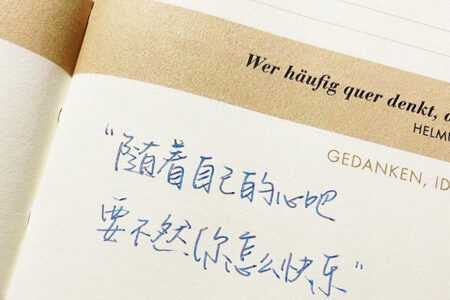 Wer häufig quer denkt,
HELM
GEDANKEN, ID
“随着自己的心吧
要不然,你怎么快乐”